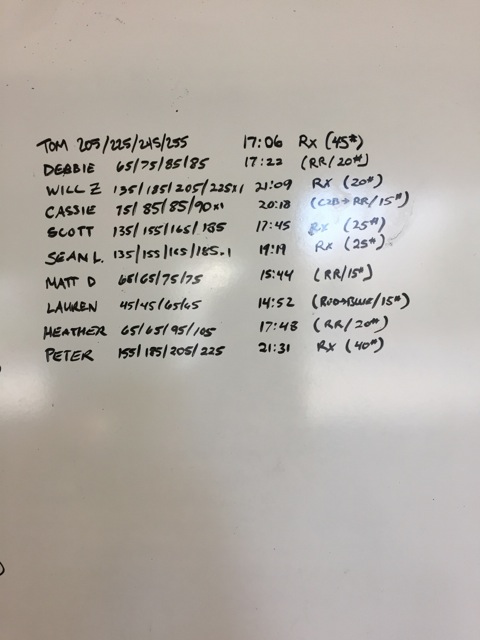 TOM 205/225/245/255 17:06 Rx (45#)
DEBBIE 65/75/85/85 17:22 (RR/20#)
WILL Z 135/185/205/225x1 21:09 Rx (20#)
CASSIE 75/85/85/90x1 20:18 (C2B→RR/15#)
SCOTT 135/155/165/185 17:45 Rx (25#)
SEAN L. 135/155/165/185.1 19:19 Rx (25#)
MATT D 65/65/75/75 15:44 (RR/15#)
LAUREN 45/45/65/65 14:52 (RED→BLUE/15#)
HEATHER 65/65/95/105 17:48 (RR/20#)
PETER 155/185/205/225 21:31 Rx (40#)